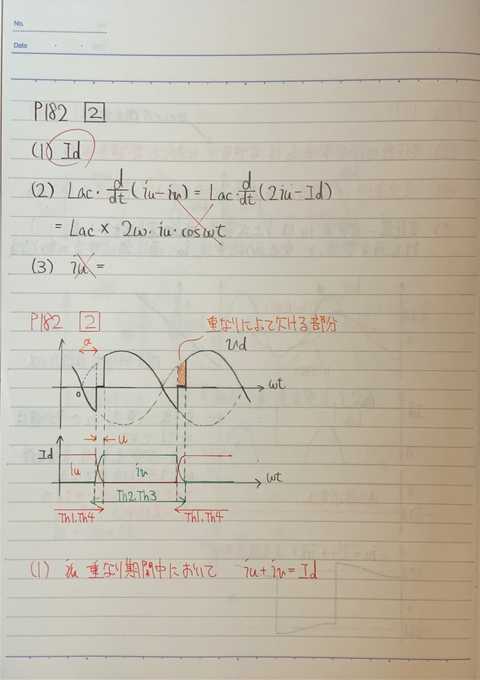 No.
Date
P182 2
(1) Id
(2) Lac・d/dt(iu-iv) = Lac・d/dt(2iu-Id)
= Lac × 2ω・iu・cosωt
(3) iu =
P182 2
重なりによって欠ける部分
α
vd
0
ωt
u
Id
iu
iv
ωt
Th2.Th3
Th1.Th4
Th1.Th4
(1) 重なり期間中において iu+iv=Id